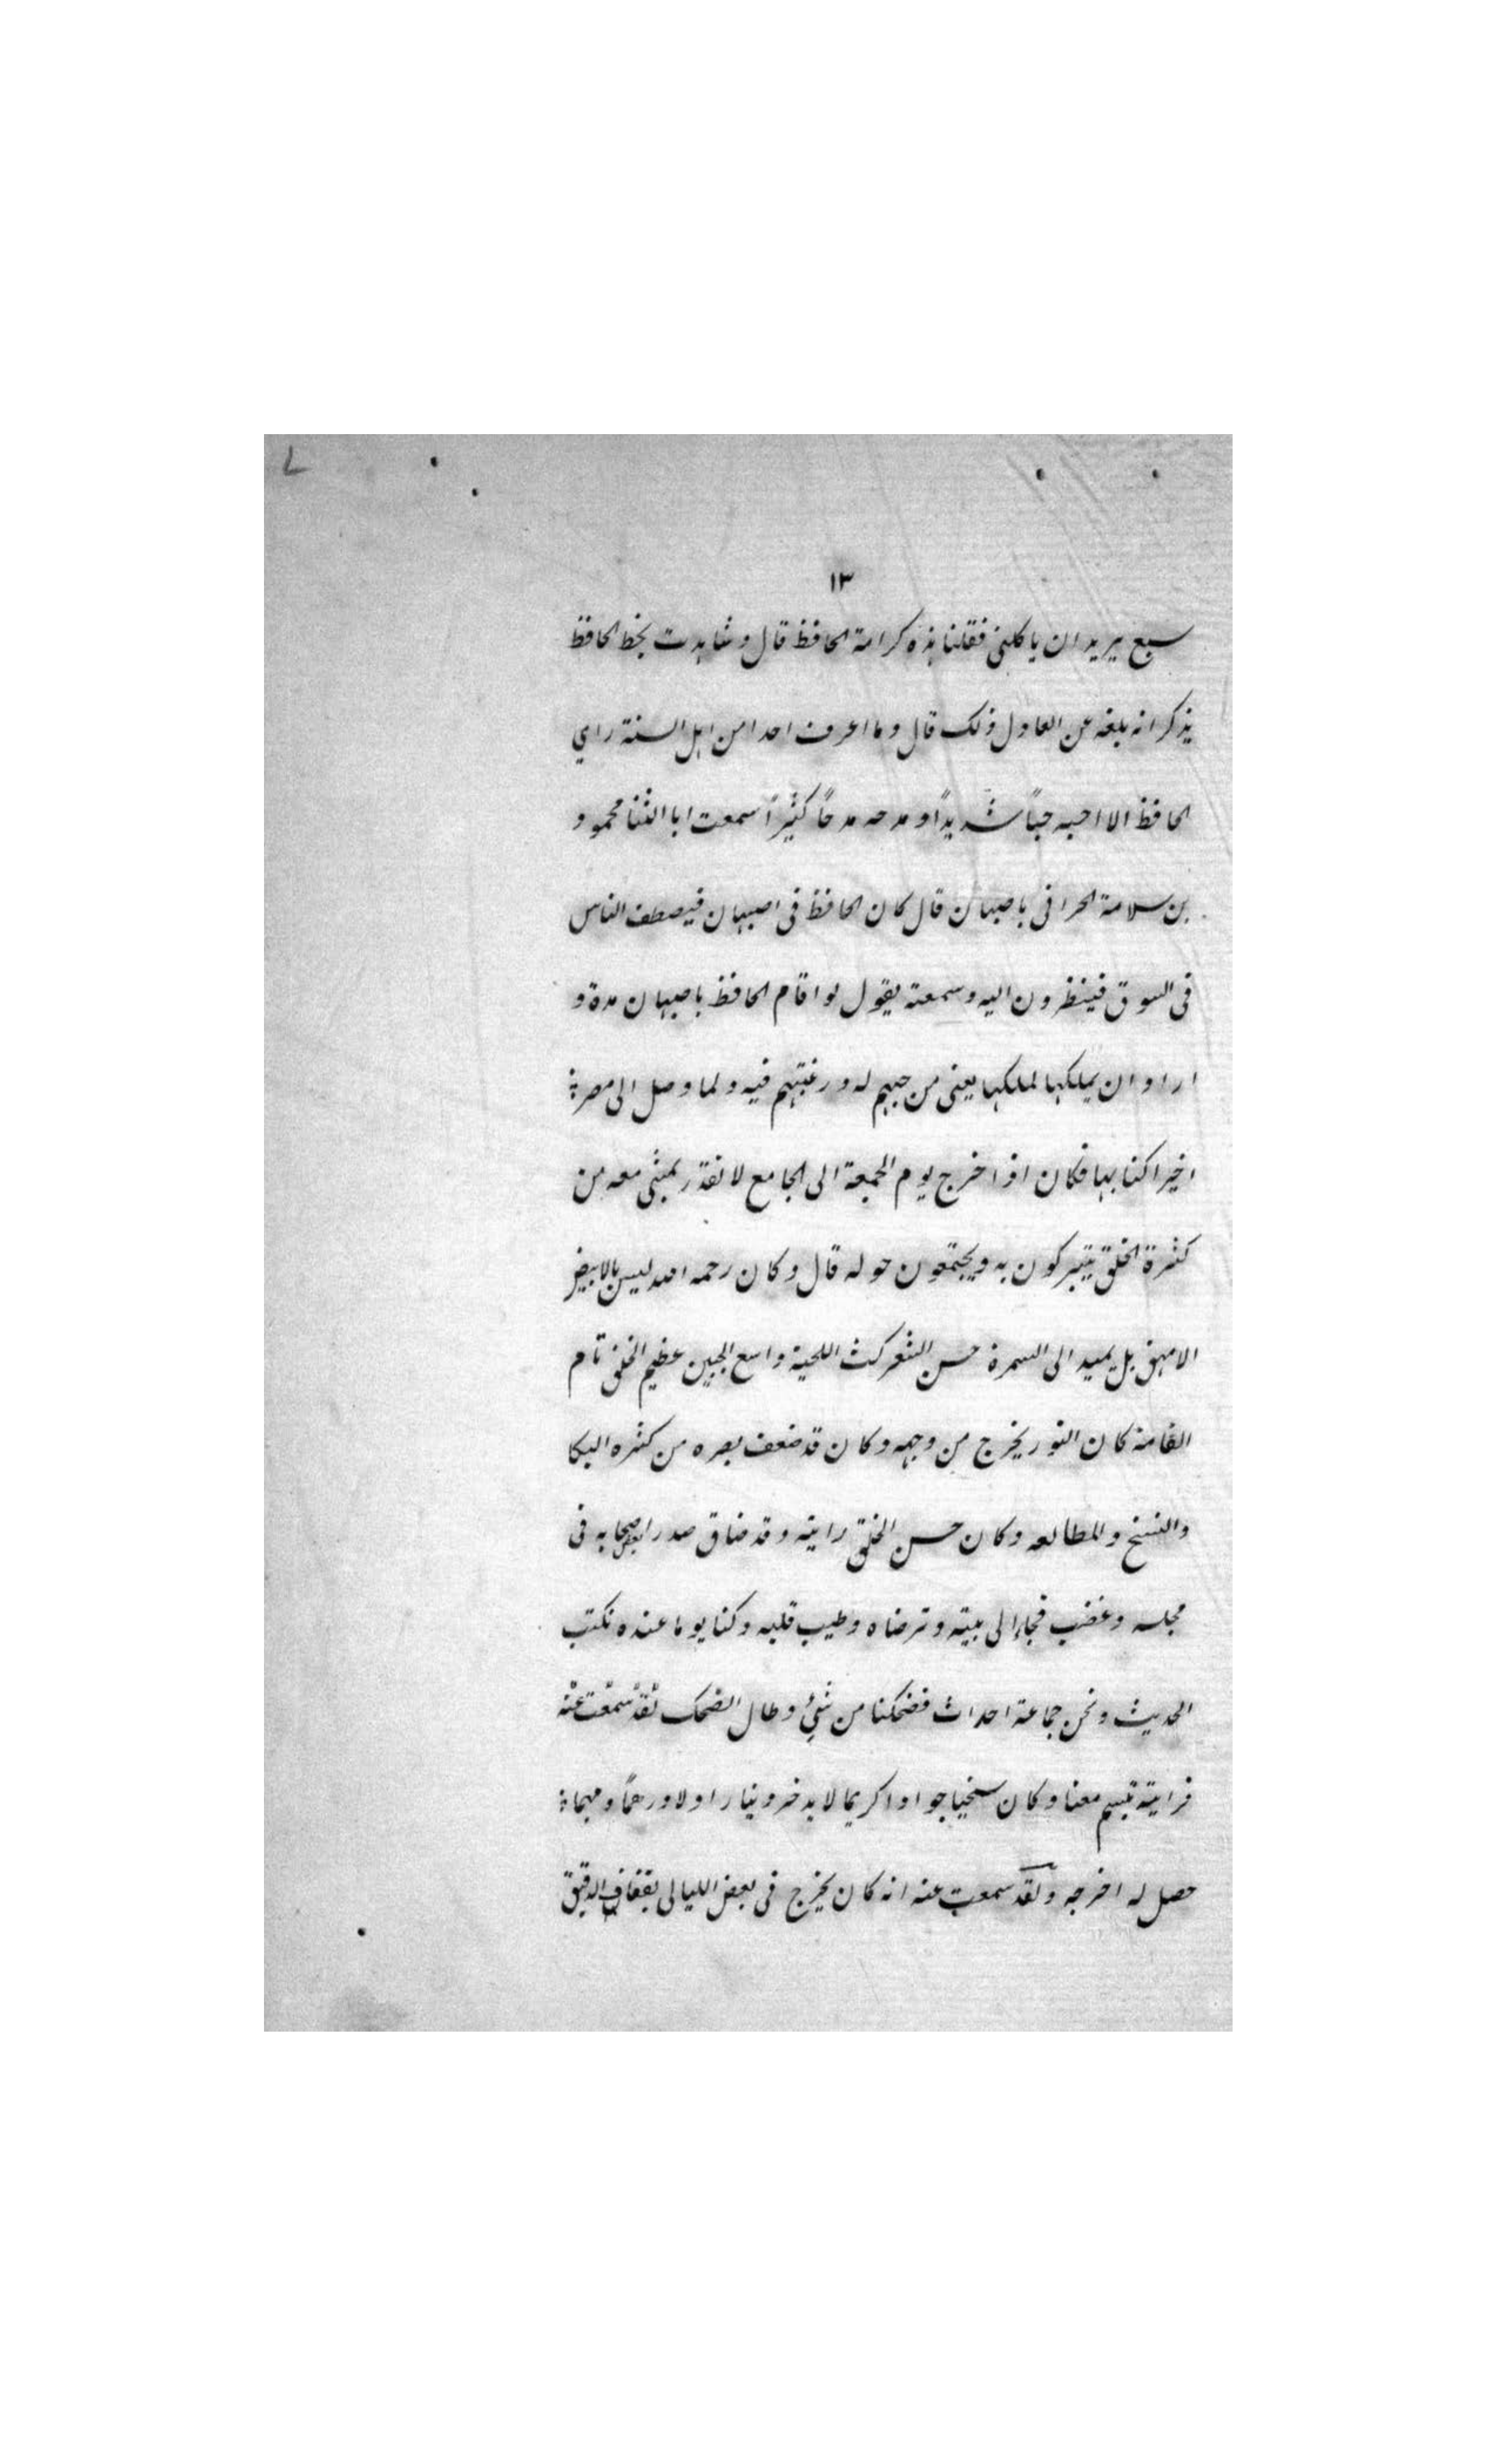 ١٣
سبع يريد ان ياكلنى فقلنا هذه كرامة الحافظ قال وشاهدت بخط الحافظ
يذكر انه بلغه عن العادل ذلك قال وما اعرف احدا من اهل السنة راى
الحافظ الا احبه حباً شديداً ومدحه مدحاً كثيراً سمعت ابا الثنا محمود
بن سلامة الحرانى باصبهان قال كان الحافظ فى اصبهان فيصطف الناس
فى السوق فينظرون اليه وسمعته يقول لو اقام الحافظ باصبهان مدة و
اراد ان يملكها لملكها يعنى من حبهم له ورغبتهم فيه ولما وصل الى مصر
اخيرا كنا بها فكان اذا خرج يوم الجمعة الى الجامع لا نقدر نمشى معه من
كثرة الخلق يتبركون به ويجتمعون حوله قال وكان رحمه الله ليس بالابيض
الامهق بل يميد الى السمرة حسن الثغر كث اللحية واسع الجبين عظيم الخلق تام
القامة كان النور يخرج من وجهه وكان قد ضعف بصره من كثره البكا
والنسخ والمطالعه وكان حسن الخلق رايته وقد ضاق صدر بعض اصحابه فى
مجلسه وغضب فجاء الى بيته وترضاه وطيب قلبه وكنا يوما عنده نكتب
الحديث ونحن جماعة احداث فضحكنا من شئ وطال الضحك لقد سمعت عنه
فرايته تبسم معنا وكان سخيا جوادا كريما لا يدخر دينارا ولا درهماً ومهما
حصل له اخرجه ولقد سمعت عنه انه كان يخرج فى بعض الليالى بقفاف الدقيق